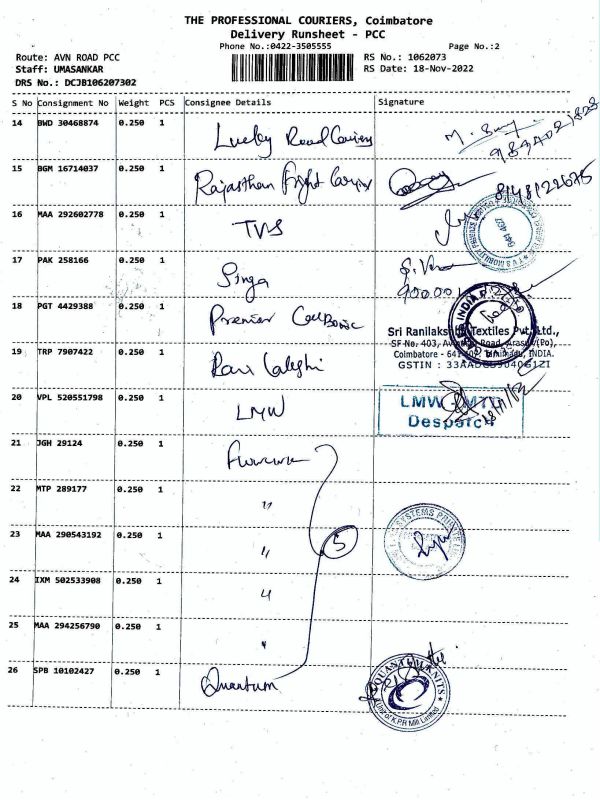 THE PROFESSIONAL COURIERS, Coimbatore
Delivery Runsheet - PCC
Phone No.:0422-3505555 Page No.:2
Route: AVN ROAD PCC RS No.: 1062073
Staff: UMASANKAR RS Date: 18-Nov-2022
DRS No.: DCJB106207302
S No Consignment No Weight PCS Consignee Details Signature
14 BWD 30468874 0.250 1
15 BGM 16714037 0.250 1 Rajasthan 8148122675
16 MAA 292602778 0.250 1 TVS
17 PAK 258166 0.250 1 Singa
18 PGT 4429388 0.250 1 Premier
Sri Ranilakshmi Textiles Pvt. Ltd.,
SF No. 403, Road, Arasur(Po),
19 TRP 7907422 0.250 1 Rani
Coimbatore - INDIA.
GSTIN :
20 VPL 520551798 0.250 1 LMW LMW - MTD
Despatch
21 JGH 29124 0.250 1
22 MTP 289177 0.250 1 "
23 MAA 290543192 0.250 1 " 5 SYSTEMS PRIVATE
24 IXM 502533908 0.250 1 "
25 MAA 294256790 0.250 1 "
26 SPB 10102427 0.250 1 Quantum QUANTUM KNITS
Unit of K.P.R Mill Limited